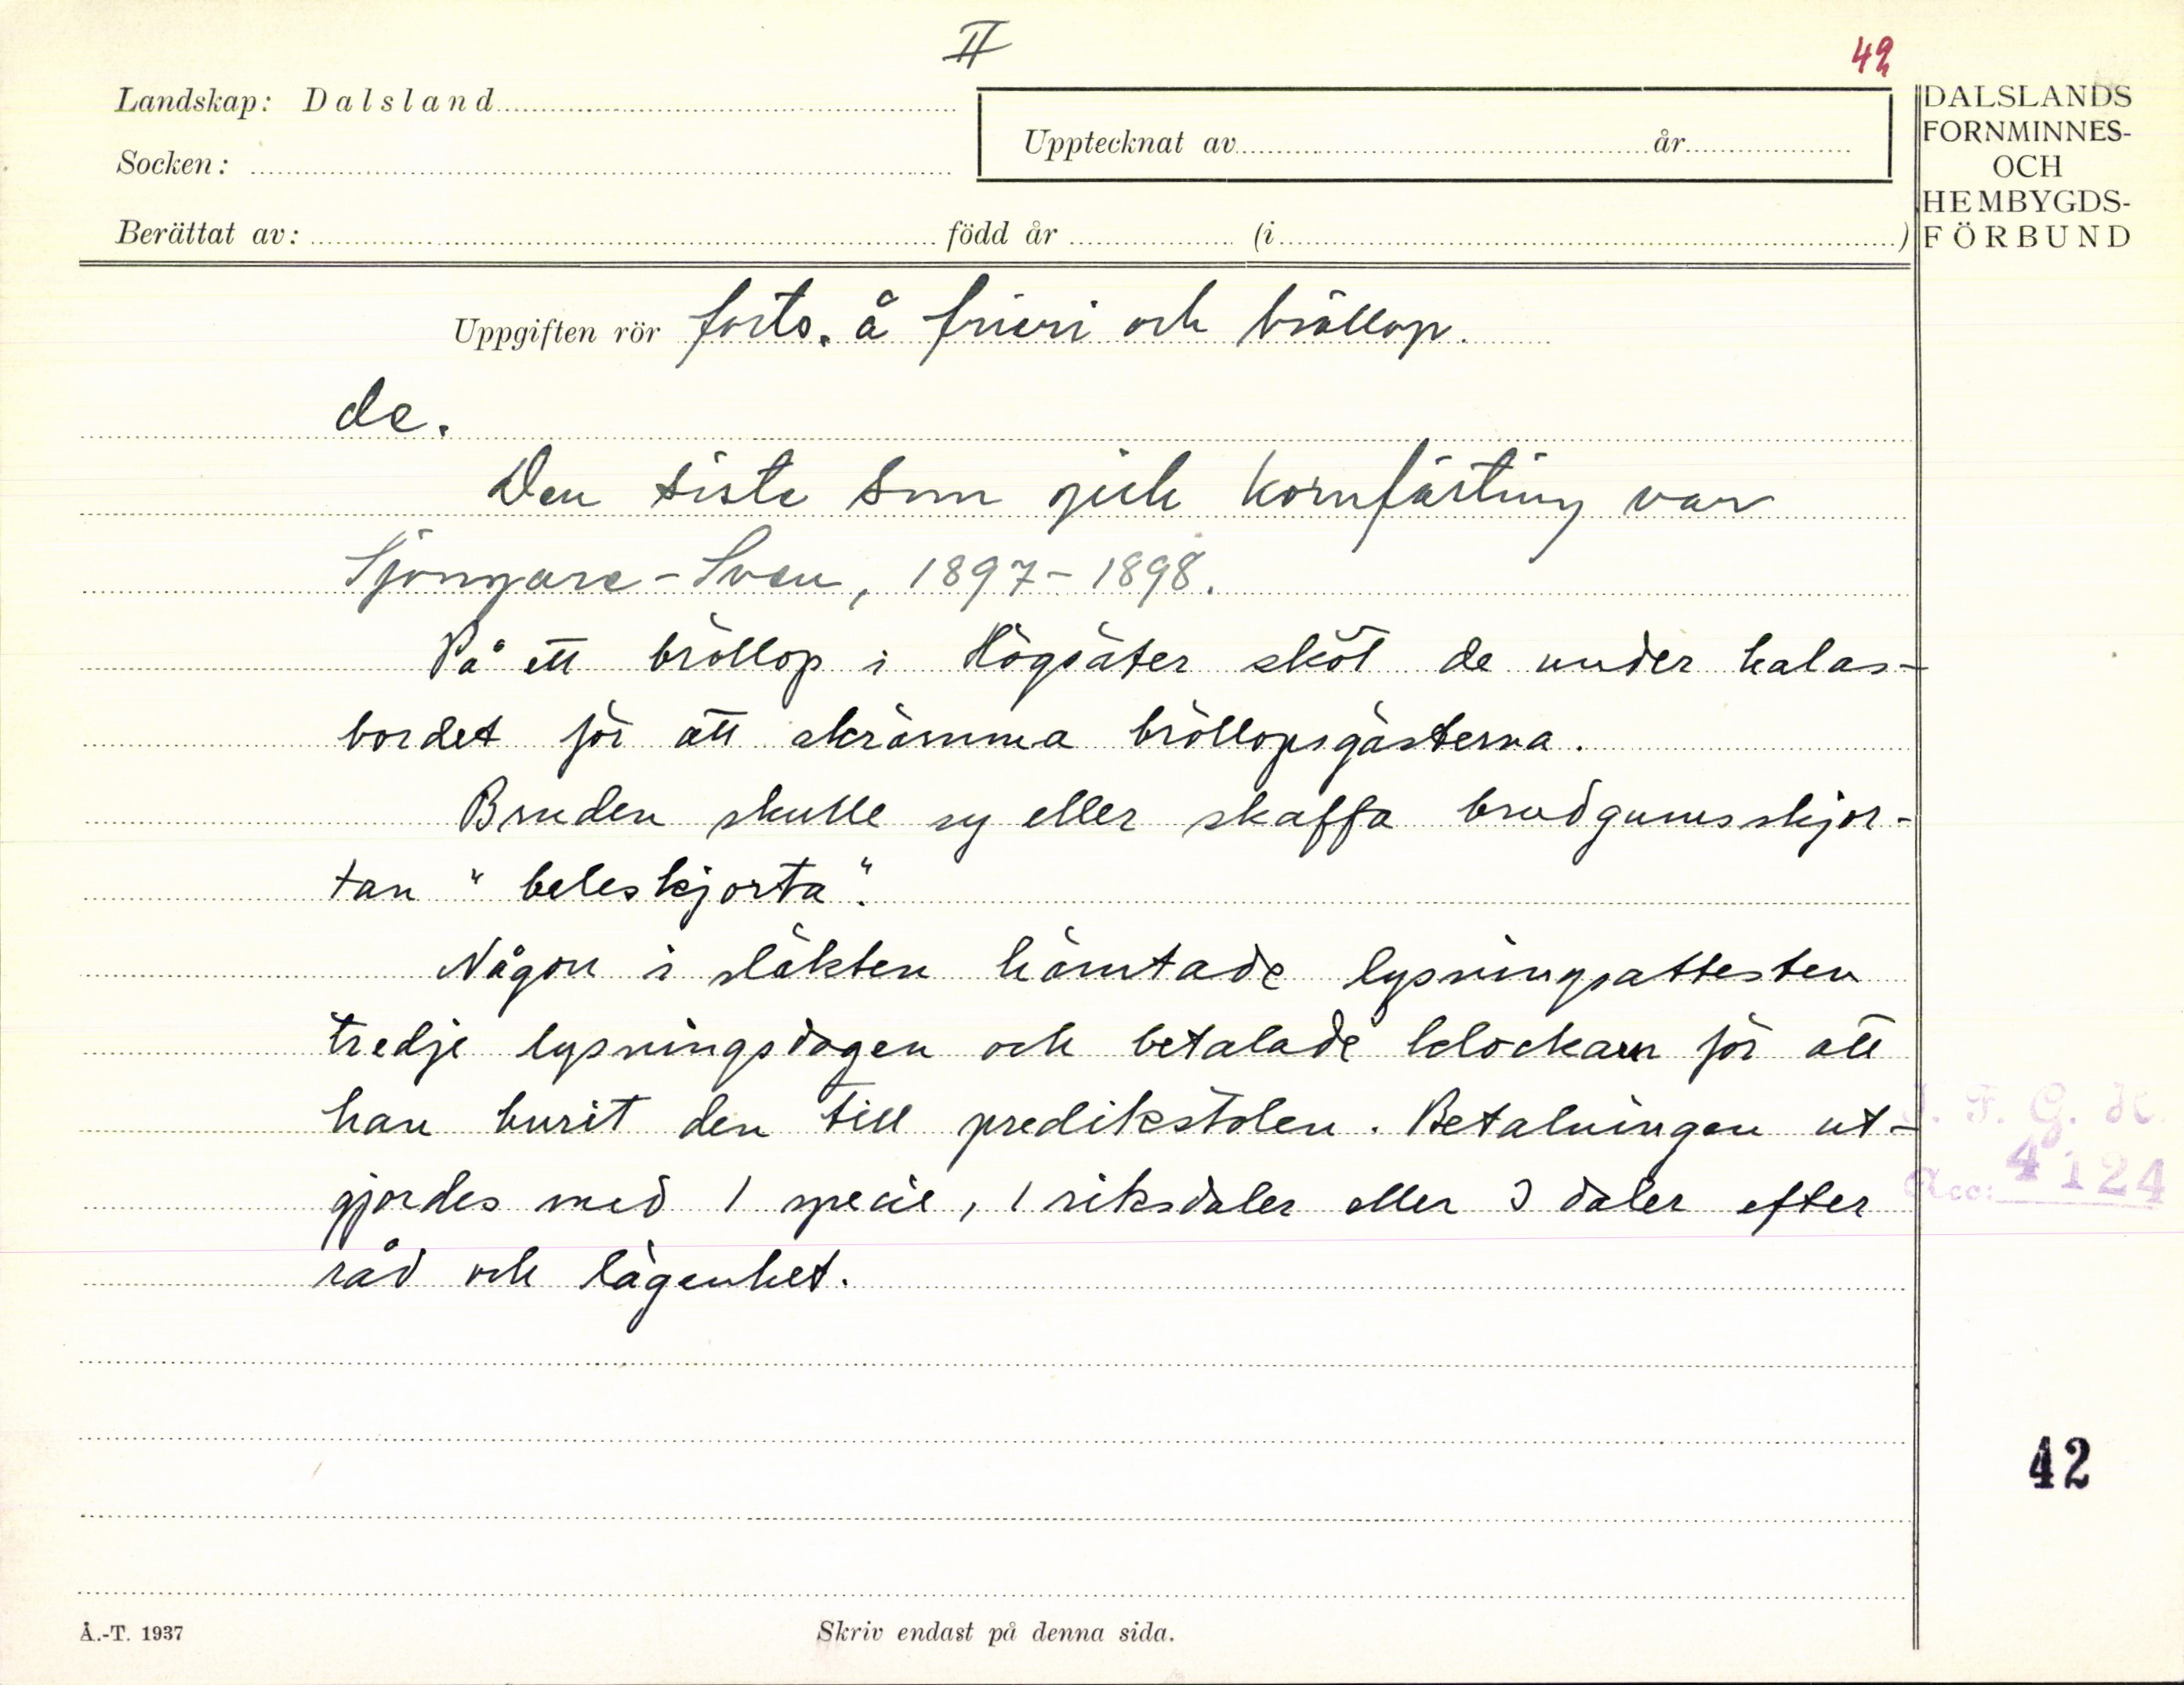 II
42
Landskap: Dalsland
Upptecknat av år
Socken:
Berättat av: född år (i )
DALSLANDS
FORNMINNES-
OCH
HEMBYGDS-
FÖRBUND
Uppgiften rör forts. å frieri och bröllop.
de.
Den siste som gick kornfärting var
Sjöngare-Sven, 1897-1898.
På ett bröllop i Högsäter sköt de under kalas-
bordet för att skrämma bröllopsgästerna.
Bruden skulle sy eller skaffa brudgumsskjor-
tan "beleskjorta".
Någon i släkten hämtade lysningsattesten
tredje lysningsdagen och betalade klockarn för att
han burit den till predikstolen. Betalningen ut-
gjordes med 1 specie, 1 riksdaler eller 3 daler efter
råd och lägenhet.
I. F. G. H.
Acc: 4124
42
Å.-T. 1937
Skriv endast på denna sida.